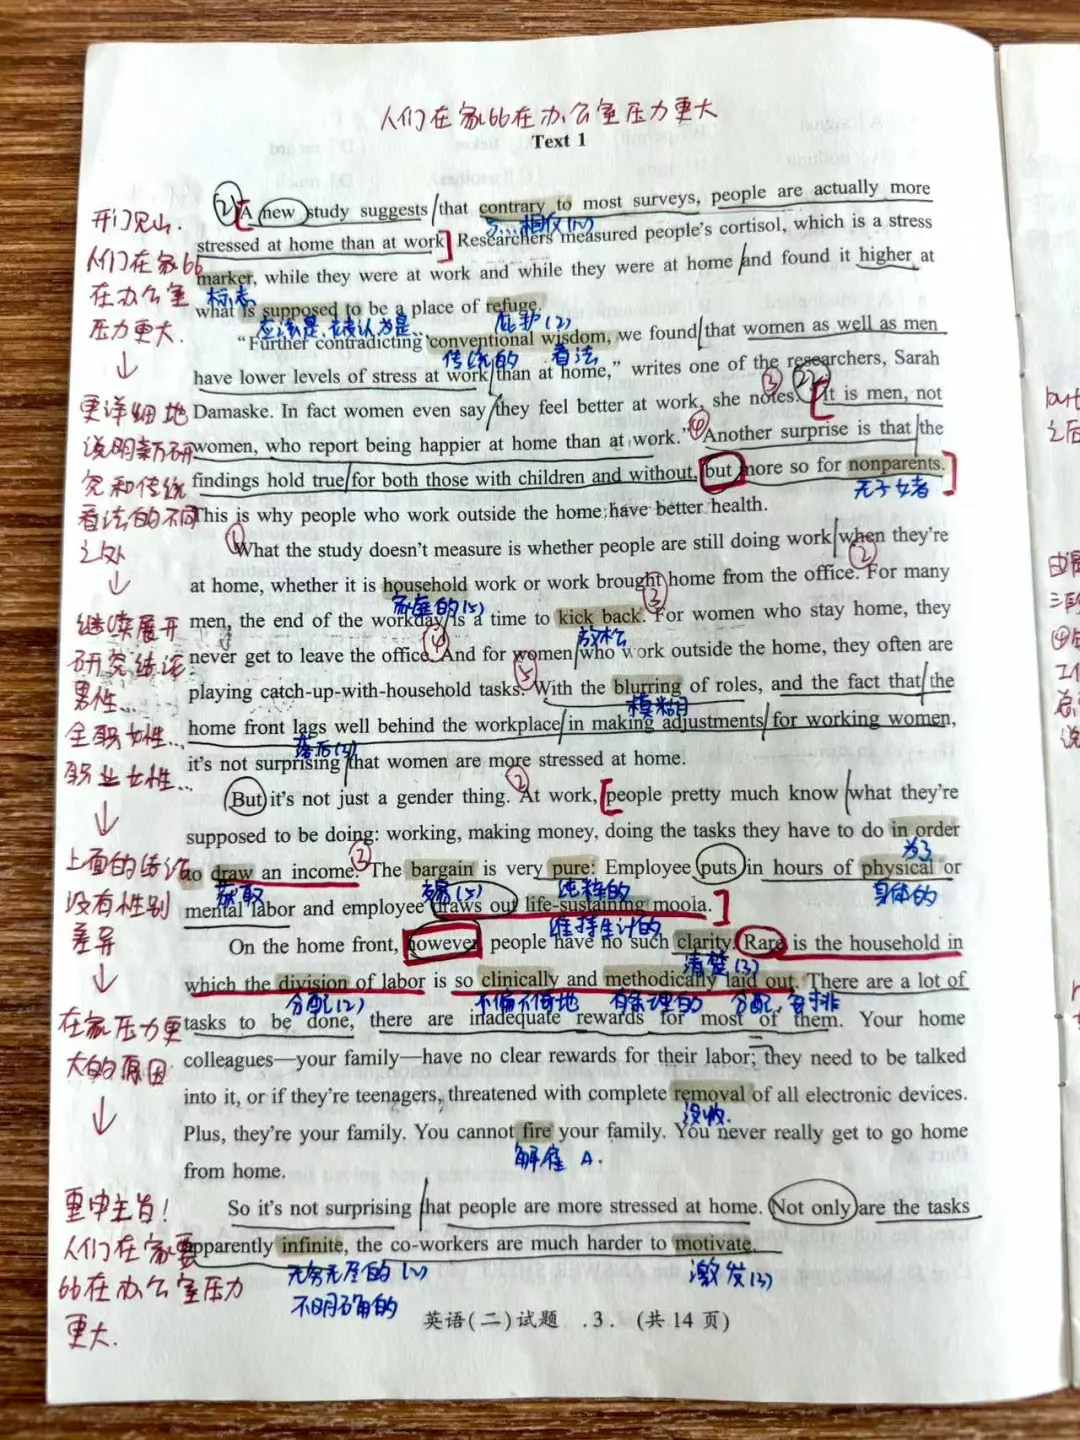 人们在家比在办公室压力更大
Text 1
② [A new study suggests that contrary to most surveys, people are actually more
与…相反(n)
stressed at home than at work] Researchers measured people's cortisol, which is a stress
marker, while they were at work and while they were at home and found it higher at
标志
what is supposed to be a place of refuge.
应该是,被认为是… 庇护(2)
"Further contradicting conventional wisdom, we found that women as well as men
传统的 看法
have lower levels of stress at work than at home," writes one of the researchers, Sarah
Damaske. In fact women even say they feel better at work, she notes. ③ ② "[It is men, not
women, who report being happier at home than at work." ④ Another surprise is that the
findings hold true for both those with children and without, but more so for nonparents.]
无子女者
This is why people who work outside the home have better health.
① What the study doesn't measure is whether people are still doing work when they're
at home, whether it is household work or work brought home from the office. ② For many
家庭的(5)
men, the end of the workday is a time to kick back. ③ For women who stay home, they
放松
never get to leave the office. ④ And for women who work outside the home, they often are
playing catch-up-with-household tasks. ⑤ With the blurring of roles, and the fact that the
模糊
home front lags well behind the workplace in making adjustments for working women,
落后(2)
it's not surprising that women are more stressed at home.
But it's not just a gender thing. ② At work, [people pretty much know what they're
supposed to be doing: working, making money, doing the tasks they have to do in order
为了
to draw an income. ③ The bargain is very pure: Employee puts in hours of physical or
获取 交易(5) 纯粹的 身体的
mental labor and employee draws out life-sustaining moola.]
维持生计的
On the home front, however, people have no such clarity. Rare is the household in
清楚(3)
which the division of labor is so clinically and methodically laid out. There are a lot of
分配(2) 不偏不倚地 有条理的 分配,安排
tasks to be done, there are inadequate rewards for most of them. Your home
colleagues—your family—have no clear rewards for their labor; they need to be talked
into it, or if they're teenagers, threatened with complete removal of all electronic devices.
没收.
Plus, they're your family. You cannot fire your family. You never really get to go home
解雇 A.
from home.
So it's not surprising that people are more stressed at home. Not only are the tasks
apparently infinite, the co-workers are much harder to motivate.
无穷无尽的(n) 激发(3)
不明确的
英语(二)试题 .3. (共14页)
开门见山.
人们在家比
在办公室
压力更大.
↓
更详细地
说明新研
究和传统
看法的不同
之处
↓
继续展开
研究结论
男性...
全职女性...
职业女性...
↓
上面的结论
没有性别
差异
↓
在家压力更
大的原因
↓
重申主旨!
人们在家要
比在办公室压力
更大.
but
之后
三段
④
工作
总
说